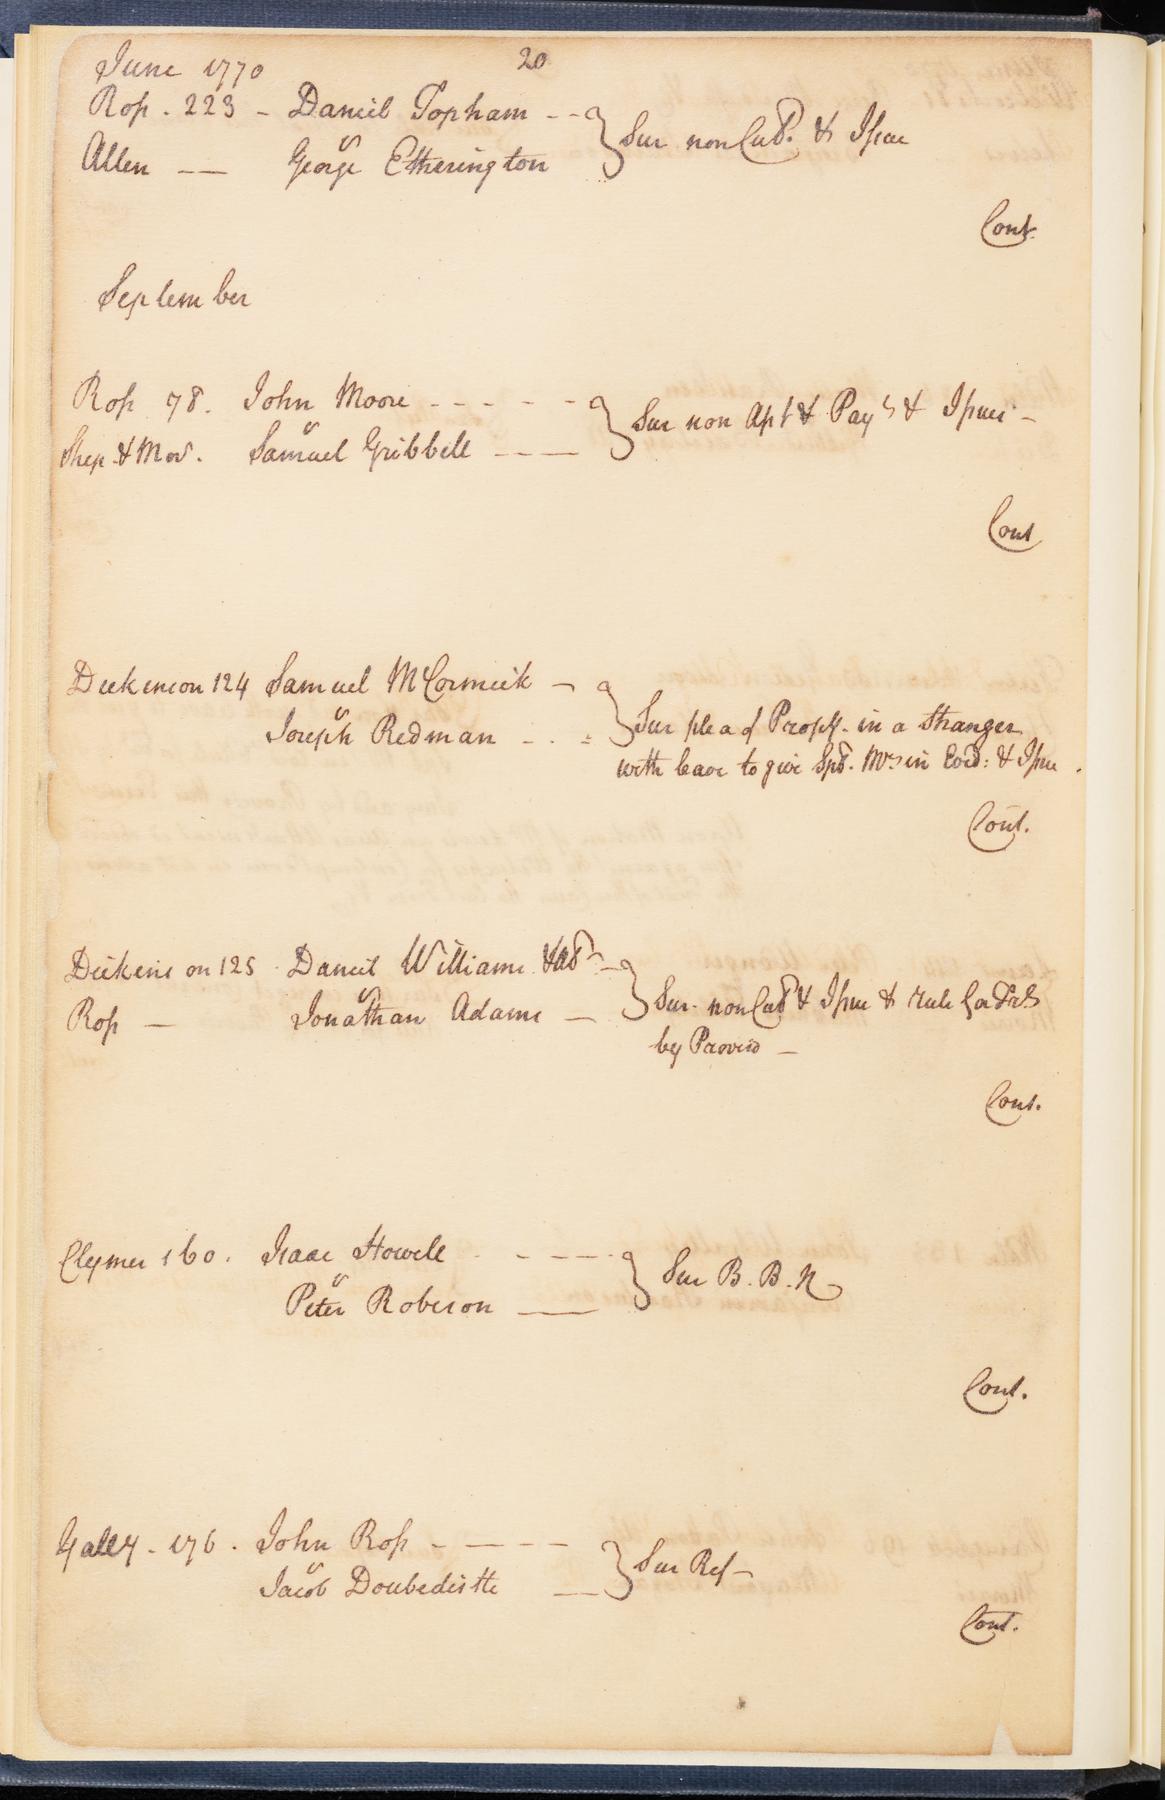 June 1770
20
Ross . 223 - Daniel Topham - -
Allen — v George Etherington
Sur non Cul. & Issue
Cont
September
Ross 78. John Moore - - - - -
Shep & Mor. v Samuel Gribbell - - —
Sur non Aps't & Pay't & Issues -
Cont
Dickenson 124 Samuel McCormick -
v Joseph Redman - . =
Sur plea of Prop'y. in a Stranger
with leave to give Sp'l. Mrs in Evid: & Issue .
Cont.
Dickens on 125 . Daniel Williams & als -
Ross — v Jonathan Adams —
Sur. non Cul & Issue & rule for Trls
by Proviso —
Cont.
Clymer 160 . Isaac Howell - - - - -
v Peter Roberson ——
Sur B. B. N
Cont.
Galley - 176 . John Ross - - - - -
v Jacob Doubedistte —
Sur Ref -
Cont.